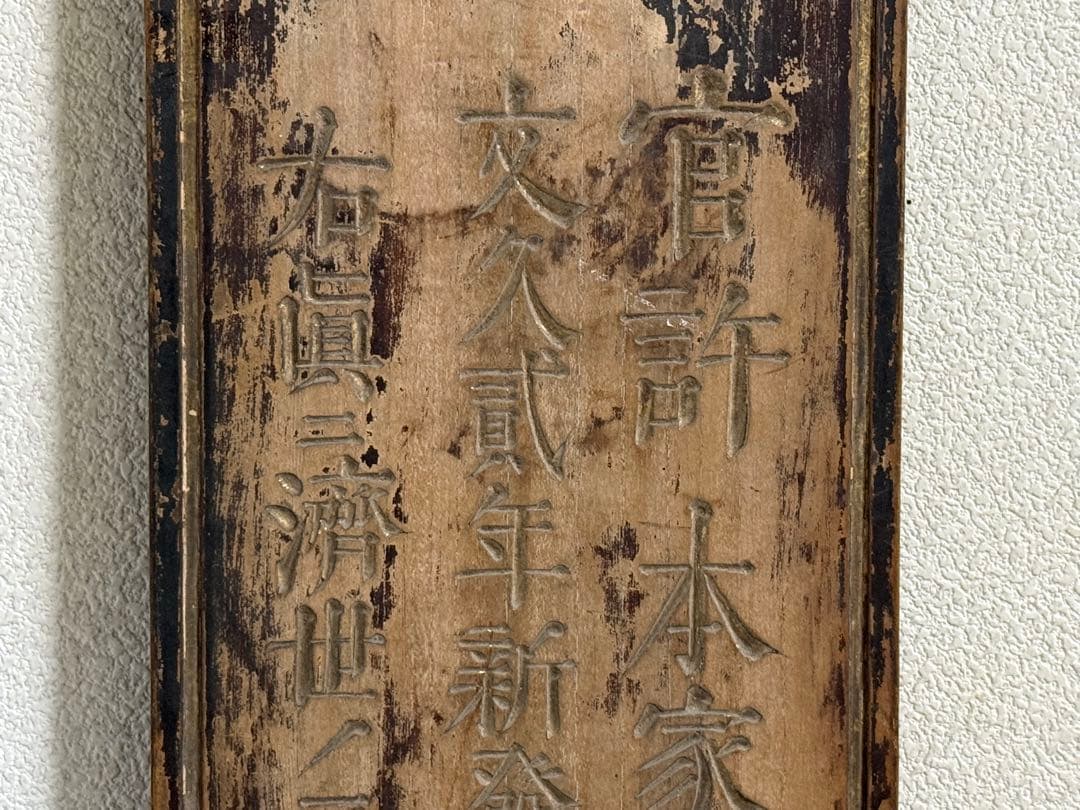 官許本家
文久貳年新発
右眞ニ濟世ノ